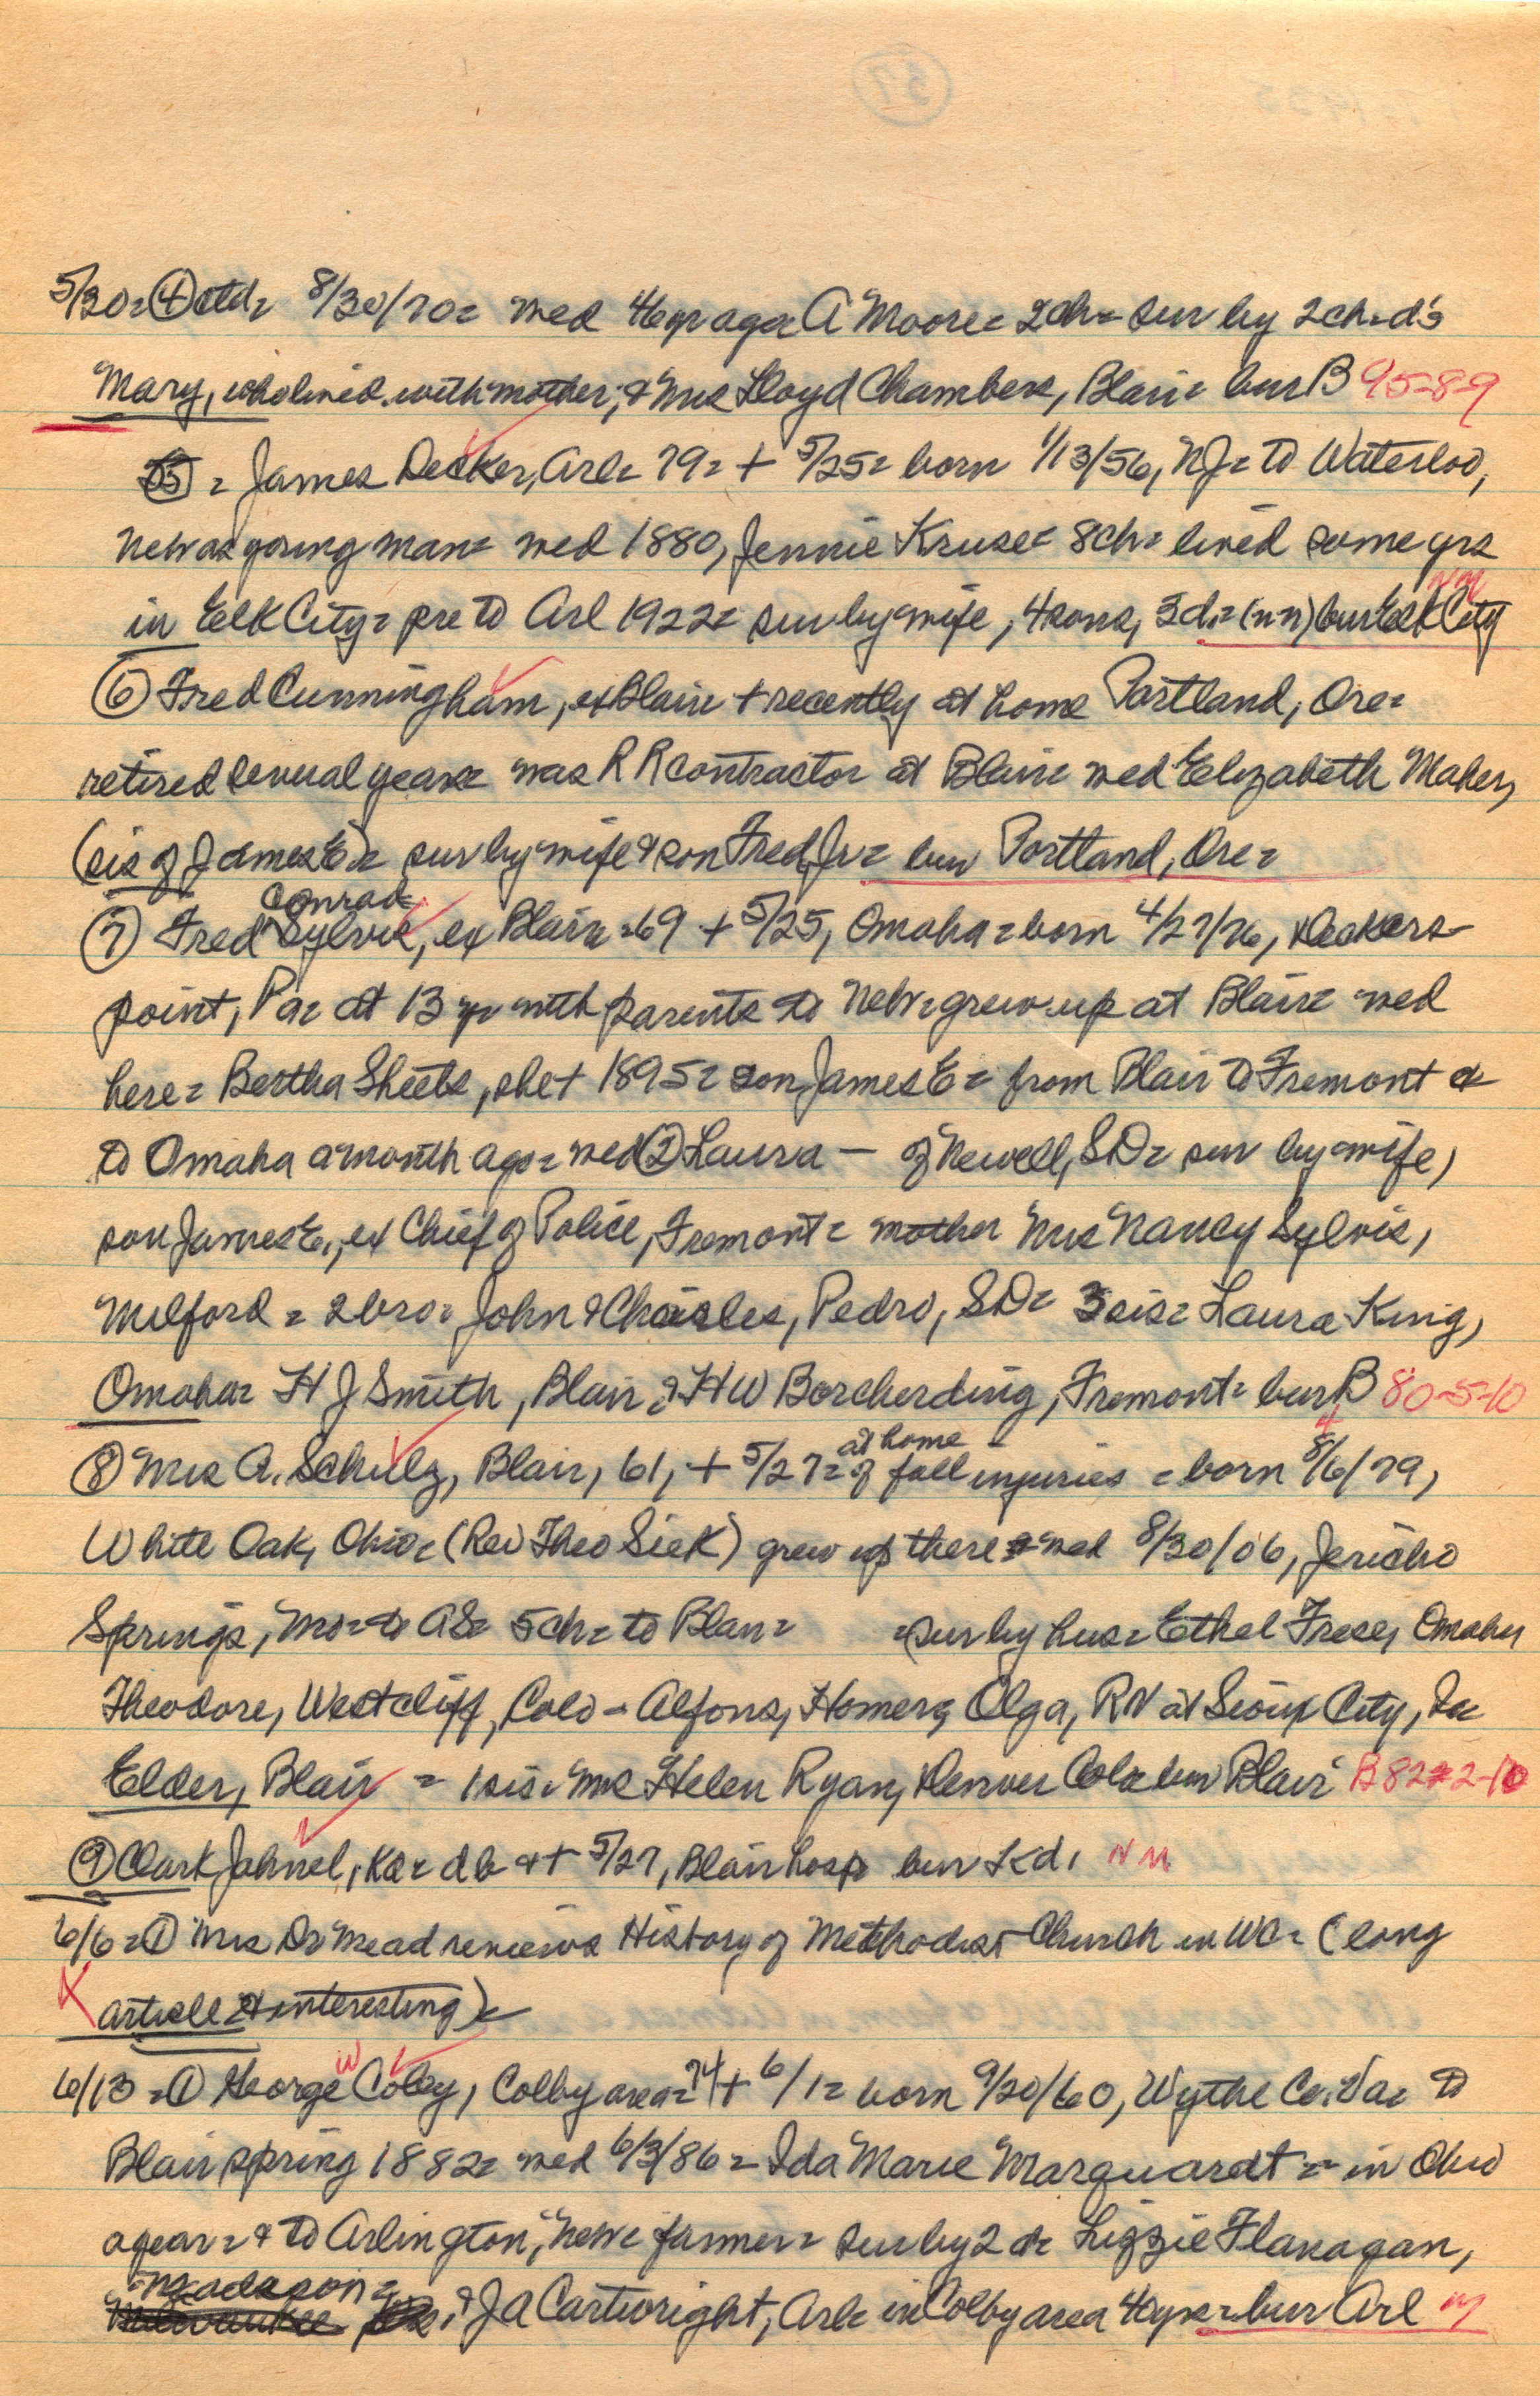 5/30 = (4) ctd = 8/30/70 = wed 46 yr ago = A Moore = 2ch = sur by 2 ch = d's
Mary, who lived with mother, & Mrs Lloyd Chambers, Blair = bur B 95-8-9
(5) = James Decker, Arl = 79 = + 5/25 = born 1/13/56, NJ = to Waterloo,
Neb as young man = wed 1880, Jennie Kruse = 8ch = lived some yrs
in Elk City = pre to Arl 1922 = sur by wife, 4 sons, 3 d = (nn) bur Elk City
(6) Fred Cunningham, ex Blair + recently at home Portland, Ore =
retired several years = was RR contractor at Blair = wed Elizabeth Maher,
(sis of James E) = sur by wife & son Fred Jr = bur Portland, Ore =
(7) Fred Conrad Sylvis, ex Blair = 69 + 5/25, Omaha = born 4/27/76, Deckers-
point, Pa = at 13 yr with parents to Neb = grew up at Blair = wed
here = Bertha Sheets, she + 1895 = son James E = from Blair to Fremont &
to Omaha a month ago = wed (2) Laura — of Newell, SD = sur by wife,
son James E., ex Chief of Police, Fremont = mother Mrs Nancy Sylvis,
Milford = 2 bro = John & Charles, Pedro, SD = 3 sis = Laura King,
Omaha = H J Smith, Blair, & H W Borcherding, Fremont = bur B 80-5-10
(8) Mrs A. Schulz, Blair, 61, + 5/27 = at home of fall injuries = born 8/6/79, 4
White Oak, Ohio = (Rev Theo Sick) grew up there = wed 8/30/06, Jericho
Springs, Mo = to 5ch = to Blair = = sur by hus = Ethel Frese, Omaha
Theodore, Westcliff, Colo - Alfons, Homer, Olga, RN at Sioux City, Ia
Elder, Blair = 1 sis = Mrs Helen Ryan, Denver Colo = bur Blair B 82-2-10
(9) Clark Jahnel, Ka = d b & + 5/27, Blair hosp bur Kd, NM
6/6 = (1) Mrs Dr Mead reviews History of Methodist Church in WC = (long
X article & interesting) =
6/13 = (1) George W Coley, Colby area = 74 + 6/1 = born 9/20/60, Wythe Co. Va = to
Blair spring 1882 = wed 6/3/86 = Ida Marie Marquardt = in Ohio
a year = & to Arlington, Neb = farmer = sur by 2 d = Lizzie Flanagan,
Madison = & J A Cartwright, Arl = in Colby area 40 yrs = bur Arl m